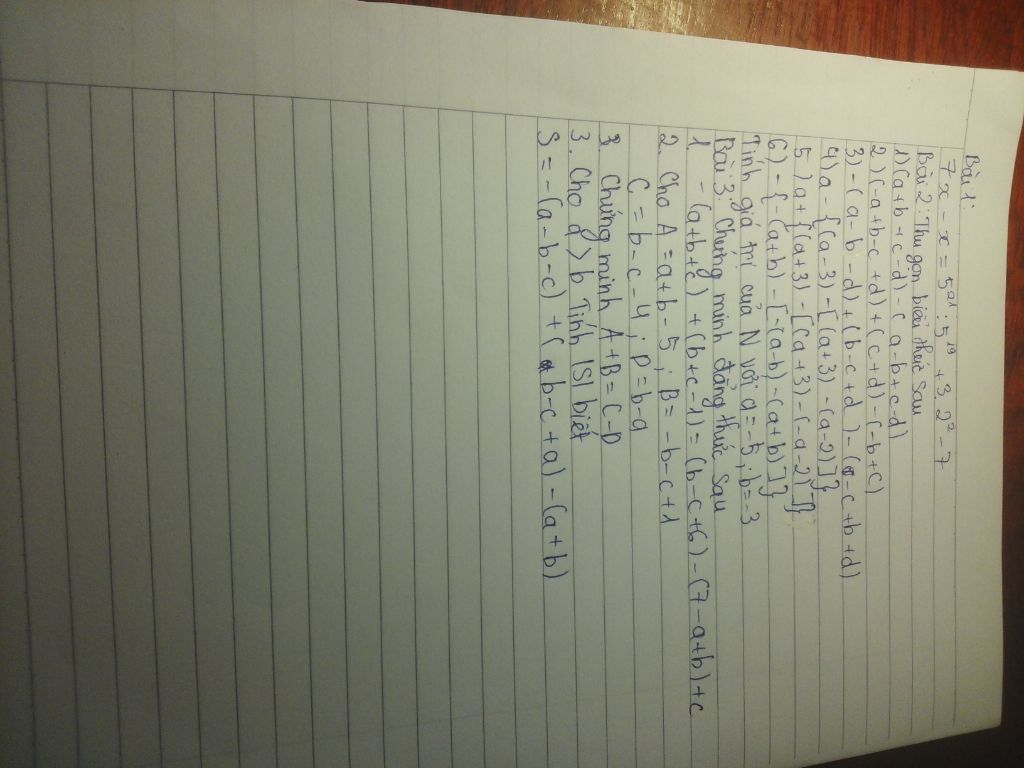 Bài 1:
7x - x = 5²¹ : 5¹⁹ + 3.2² - 7
Bài 2: Thu gọn biểu thức sau
1) (a+b+c-d) - (a-b+c-d)
2) (-a+b-c+d) + (c+d) - (-b+c)
3) -(a-b-d) + (b-c+d) - (a-c+b+d)
4) a - {(a-3) - [(a+3) - (a-2)]}
5) a + {(a+3) - [(a+3) - (-a-2)]}
6) - {-(a+b) - [-(a-b) - (a+b)]}
Tính giá trị của N với a = -5; b = -3
Bài 3: Chứng minh đẳng thức sau
1 -(a+b+c) + (b+c-1) = (b-c+6) - (7-a+b) + c
2. Cho A = a+b-5; B = -b-c+1
C = b-c-4; D = b-a
3 Chứng minh A+B = C-D
3. Cho a > b Tính |S| biết
S = -(a-b-c) + (-b-c+a) - (a+b)